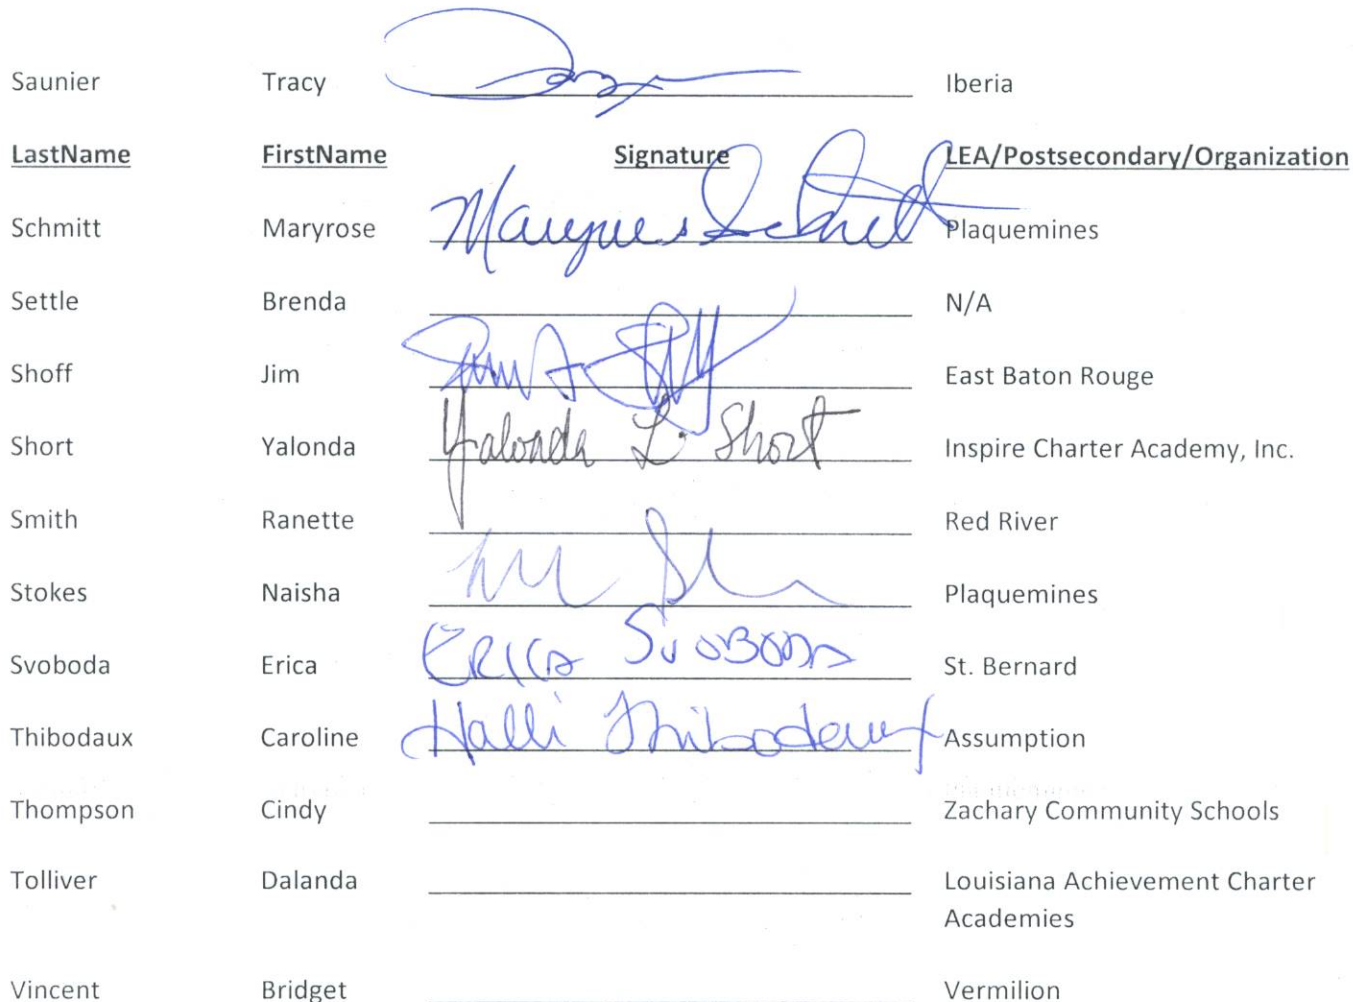 Saunier Tracy Iberia
LastName FirstName Signature LEA/Postsecondary/Organization
Schmitt Maryrose Maryrose Schmitt Plaquemines
Settle Brenda N/A
Shoff Jim East Baton Rouge
Short Yalonda Yalonda L. Short Inspire Charter Academy, Inc.
Smith Ranette Red River
Stokes Naisha Plaquemines
Svoboda Erica ERICA SVOBODA St. Bernard
Thibodaux Caroline Halli Thibodeaux Assumption
Thompson Cindy Zachary Community Schools
Tolliver Dalanda Louisiana Achievement Charter
Academies
Vincent Bridget Vermilion